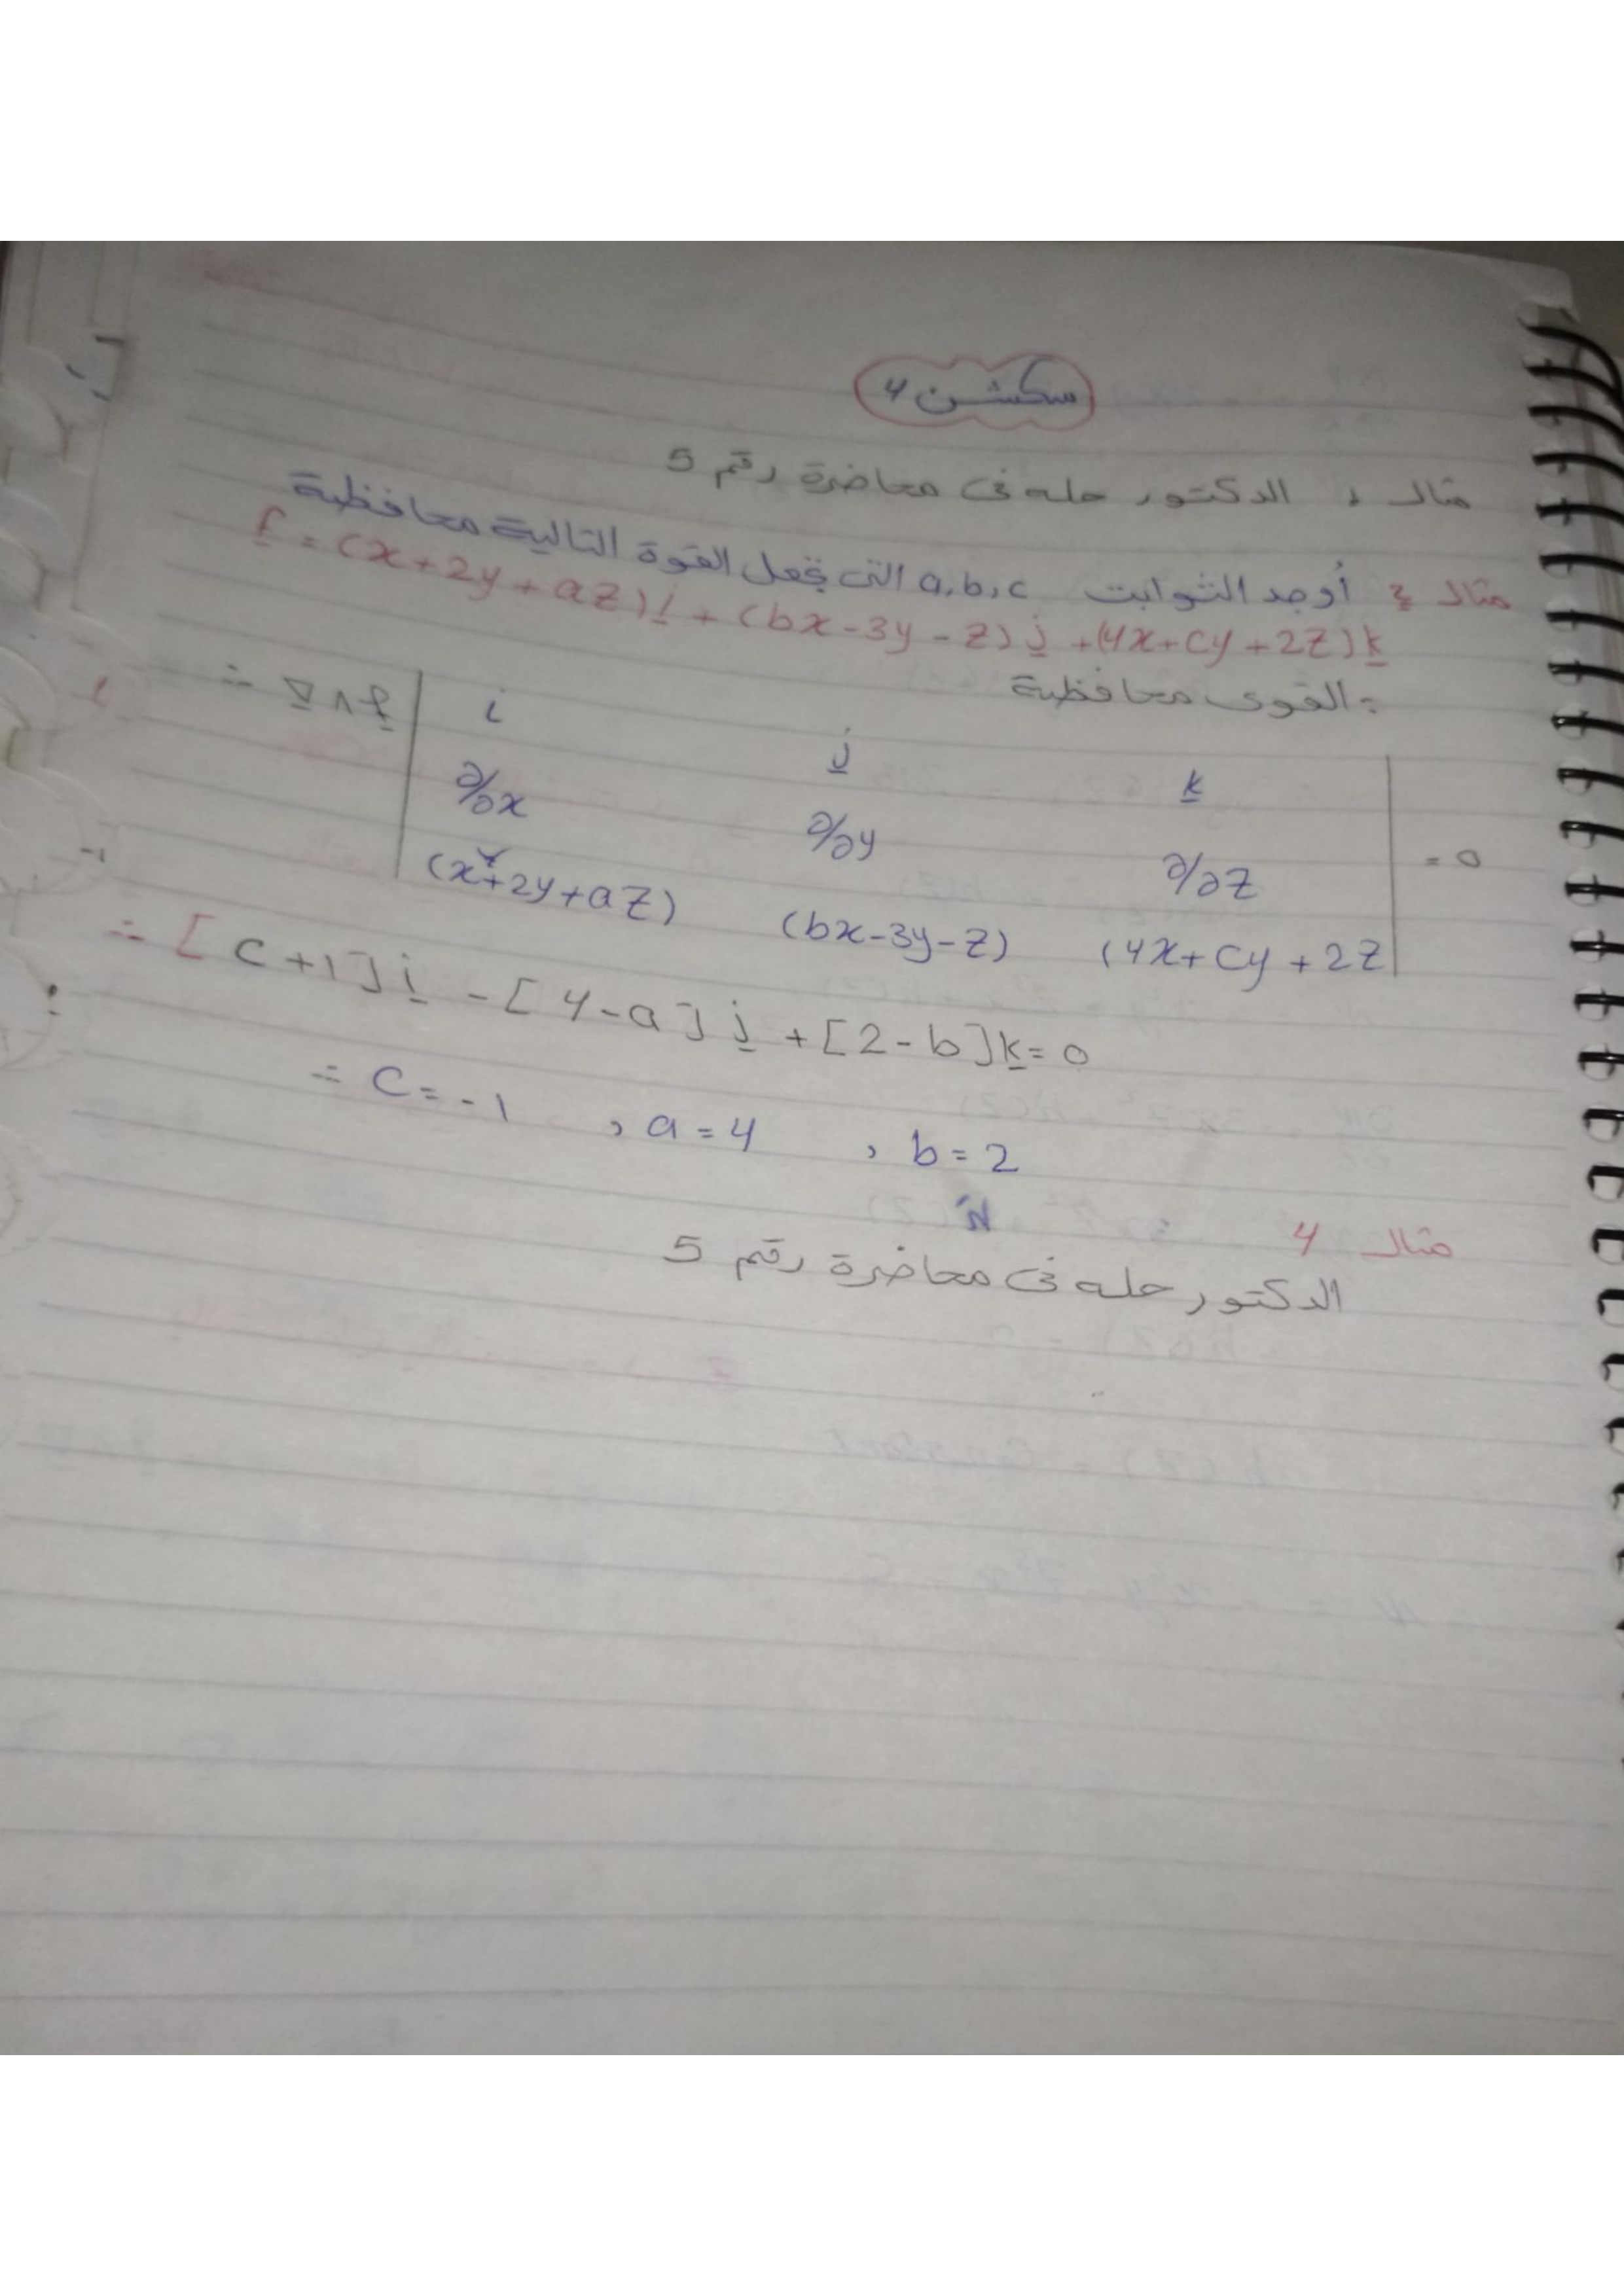 سكشن 4
مثال 1 الدكتور حله فى محاضرة رقم 5
مثال 3 أوجد الثوابت a,b,c التى تجعل القوة التالية محافظية
f = (x+2y+az)i + (bx-3y-z)j +(4x+cy+2z)k
∵ القوى محافظية
∴ ∇∧f
i j k
∂/∂x ∂/∂y ∂/∂z = 0
(x+2y+az) (bx-3y-z) (4x+cy+2z
∴ [c+1]i - [4-a]j + [2-b]k = 0
∴ c=-1 , a=4 , b=2
مثال 4
الدكتور حله فى محاضرة رقم 5